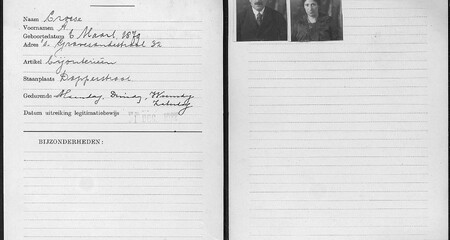 Naam Croese
Voornamen A.
Geboortedatum 6 Maart 1879
Adres 's Gravesandestraat 32
Artikel Bijouterieën
Staanplaats Dapperstraat
Gedurende Maandag, Dinsdag, Woensdag
Zaterdag
Datum uitreiking legitimatiebewijs
BIJZONDERHEDEN: